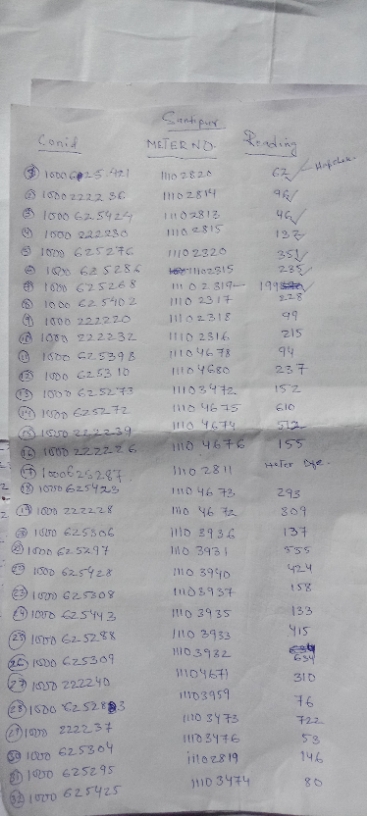 Conid METER NO. Reading
① 1000625421 11102820 62
② 1000222236 11102814 96
③ 1000625424 11102813 46
④ 1000222230 11102815 137
⑤ 1000625276 11102320 351
⑥ 1000625286 11102315 235
⑦ 1000625268 11102319 199
⑧ 1000625402 11102317 228
⑨ 1000222220 11102318 99
⑩ 1000222232 11102316 215
⑪ 1000625393 11104678 94
⑫ 1000625310 11104680 237
⑬ 1000625273 11103472 152
⑭ 1000625272 11104675 610
⑮ 1000222239 11104674 512
⑯ 1000222226 11104676 155
⑰ 1000625287 11102811 Meter Dfc.
⑱ 1000625423 11104673 293
⑲ 1000222228 11104672 309
⑳ 1000625306 11103936 137
㉑ 1000625297 11103931 555
㉒ 1000625428 11103940 424
㉓ 1000625308 11103937 158
㉔ 1000625443 11103935 133
㉕ 1000625288 11103933 415
㉖ 1000625309 11103932 634
㉗ 1000222240 11104671 310
㉘ 1000625283 11103959 76
㉙ 1000222237 11103473 722
㉚ 1000625304 11103476 53
㉛ 1000625295 11102819 146
㉜ 1000625425 11103474 80